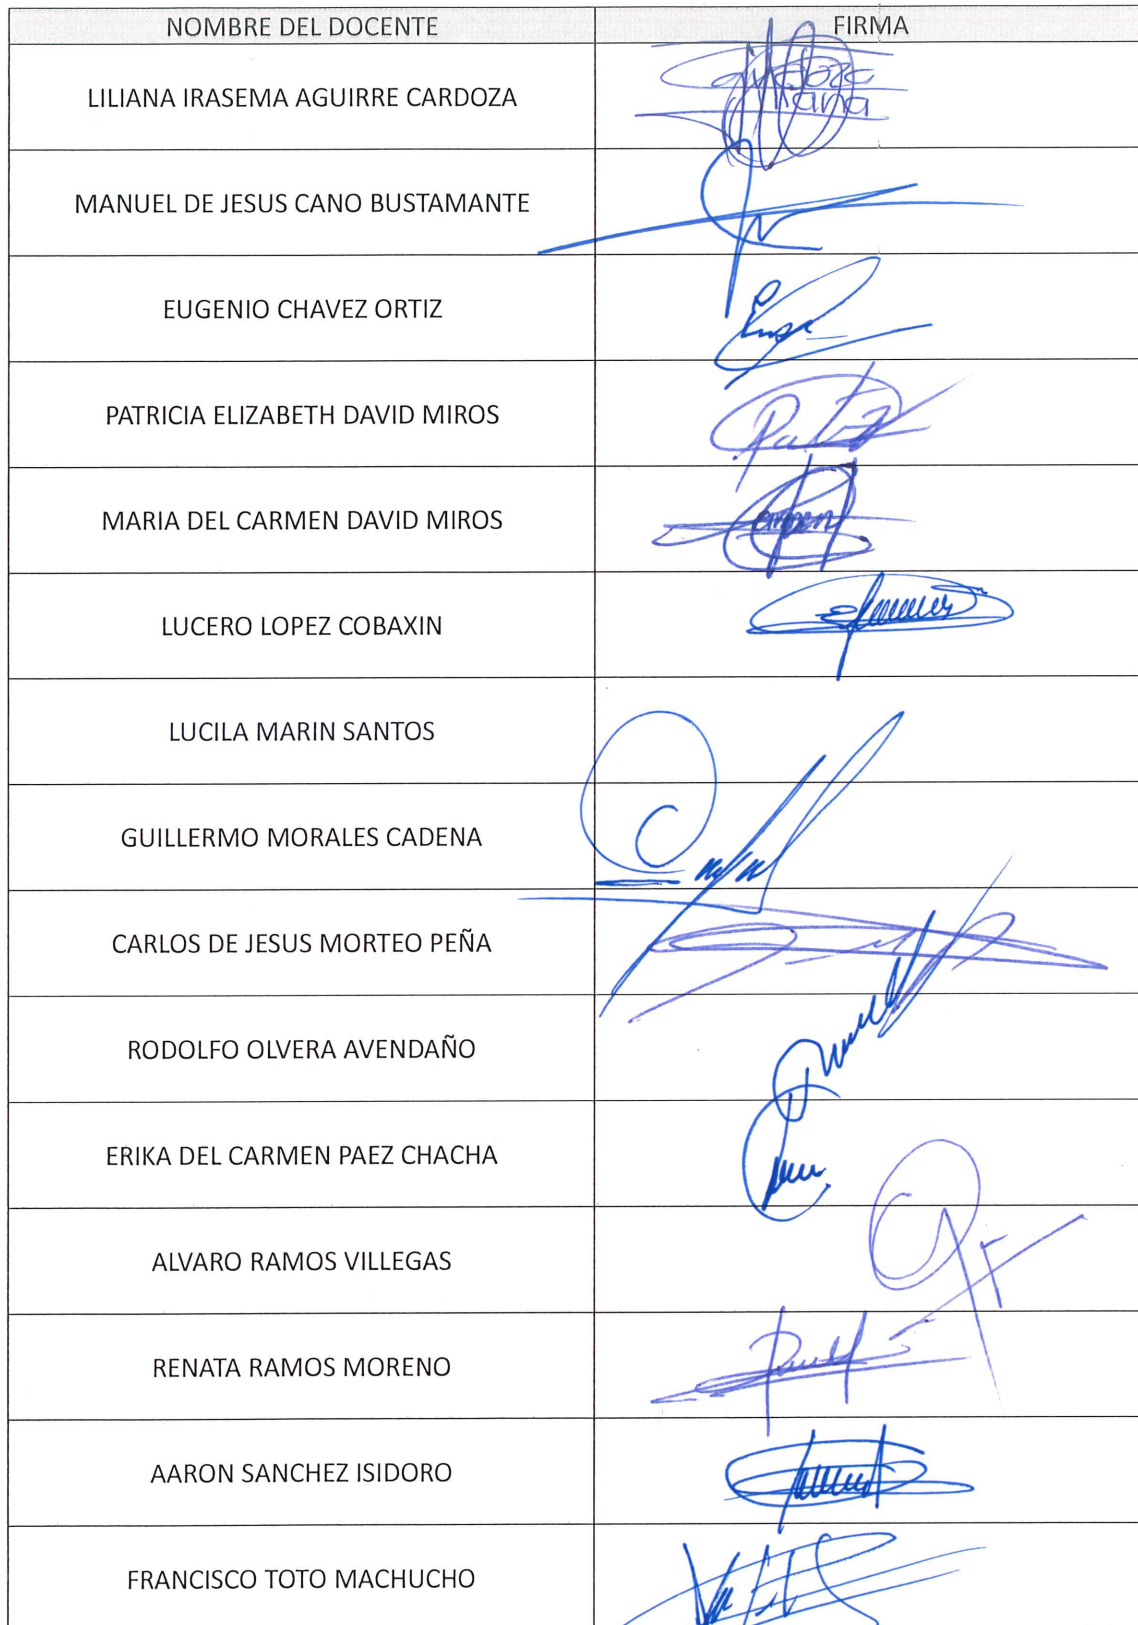 NOMBRE DEL DOCENTE FIRMA
LILIANA IRASEMA AGUIRRE CARDOZA
MANUEL DE JESUS CANO BUSTAMANTE
EUGENIO CHAVEZ ORTIZ
PATRICIA ELIZABETH DAVID MIROS
MARIA DEL CARMEN DAVID MIROS
LUCERO LOPEZ COBAXIN
LUCILA MARIN SANTOS
GUILLERMO MORALES CADENA
CARLOS DE JESUS MORTEO PEÑA
RODOLFO OLVERA AVENDAÑO
ERIKA DEL CARMEN PAEZ CHACHA
ALVARO RAMOS VILLEGAS
RENATA RAMOS MORENO
AARON SANCHEZ ISIDORO
FRANCISCO TOTO MACHUCHO